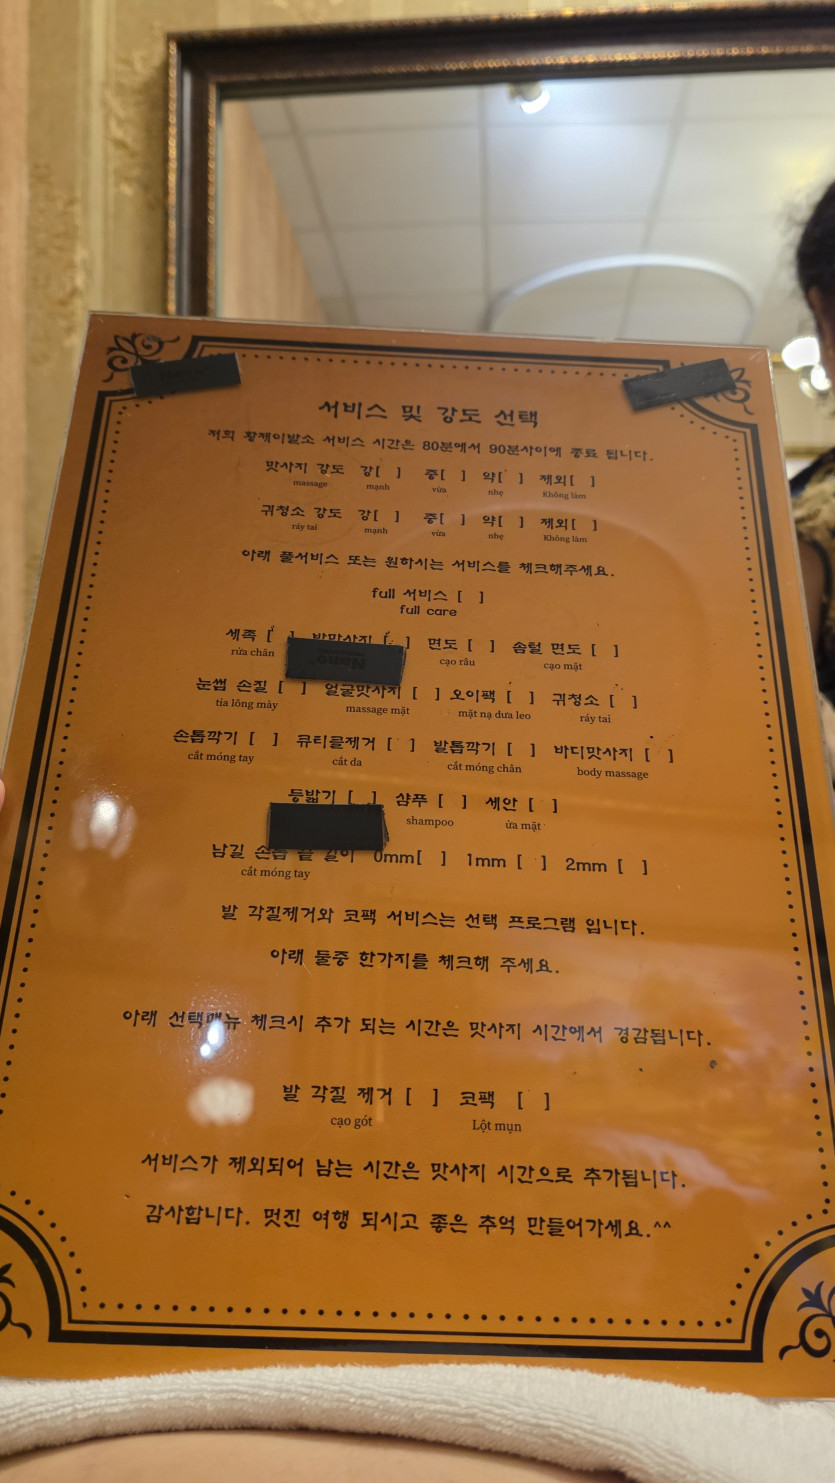 서비스 및 강도 선택
저희 황제이발소 서비스 시간은 80분에서 90분사이에 종료 됩니다.
맛사지 강도 강[ ] 중[ ] 약[ ] 제외[ ]
massage mạnh vừa nhẹ Không làm
귀청소 강도 강[ ] 중[ ] 약[ ] 제외[ ]
ráy tai mạnh vừa nhẹ Không làm
아래 풀서비스 또는 원하시는 서비스를 체크해주세요.
full 서비스 [ ]
full care
세족 [ ] 발맛사지 [ ] 면도 [ ] 솜털 면도 [ ]
rửa chân cạo râu cạo mặt
눈썹 손질 [ ] 얼굴맛사지 [ ] 오이팩 [ ] 귀청소 [ ]
tỉa lông mày massage mặt mặt nạ dưa leo ráy tai
손톱깍기 [ ] 큐티클제거 [ ] 발톱깍기 [ ] 바디맛사지 [ ]
cắt móng tay cắt da cắt móng chân body massage
등밟기 [ ] 샴푸 [ ] 세안 [ ]
shampoo ửa mặt
남길 손톱 끝 길이 0mm[ ] 1mm [ ] 2mm [ ]
cắt móng tay
발 각질제거와 코팩 서비스는 선택 프로그램 입니다.
아래 둘중 한가지를 체크해 주세요.
아래 선택메뉴 체크시 추가 되는 시간은 맛사지 시간에서 경감됩니다.
발 각질 제거 [ ] 코팩 [ ]
cạo gót Lột mụn
서비스가 제외되어 남는 시간은 맛사지 시간으로 추가됩니다.
감사합니다. 멋진 여행 되시고 좋은 추억 만들어가세요.^^